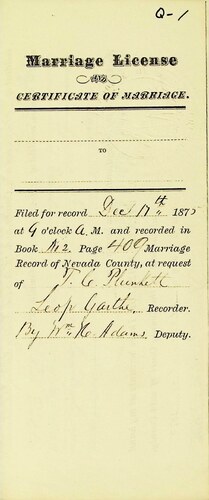 Q-1
Marriage License
AND
CERTIFICATE OF MARRIAGE.
TO
Filed for record Dec 17th 1875
at 9 o'clock A. M. and recorded in
Book No 2. Page 400 Marriage
Record of Nevada County, at request
of T. C. Plunkett
Leop Garthe, Recorder.
By Wm H. Adams, Deputy.